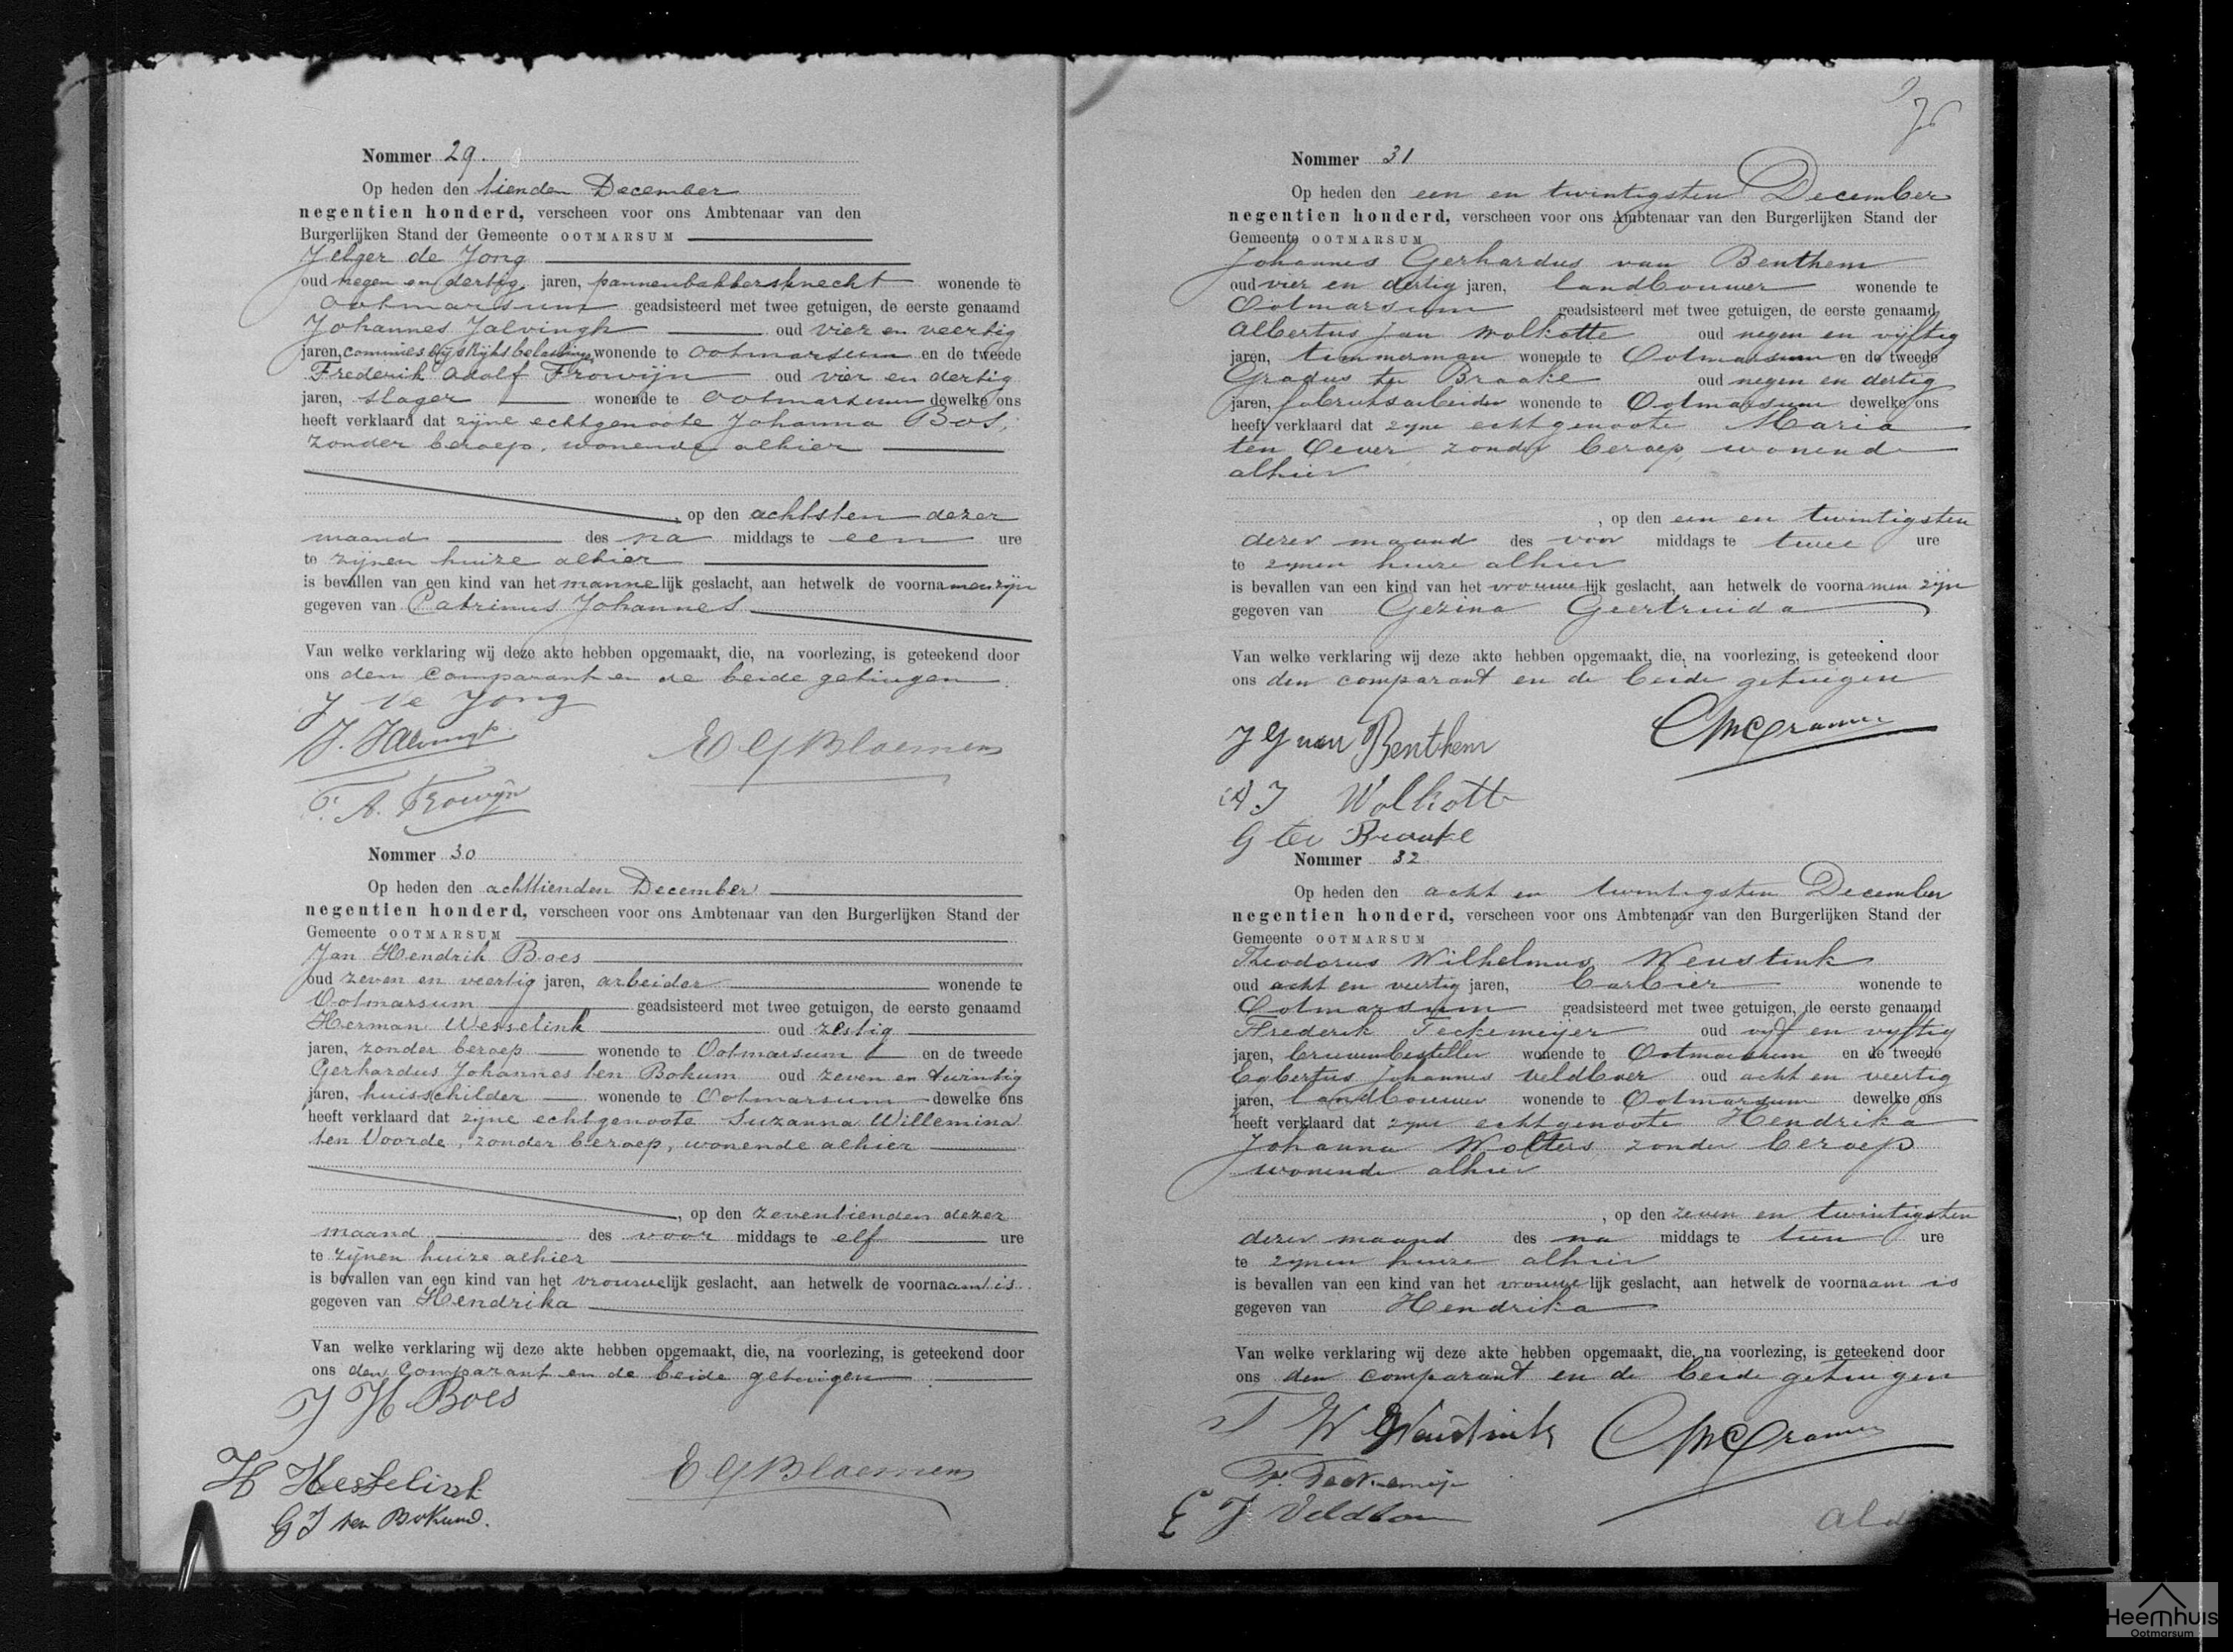 Nommer 29.
Op heden den tienden December
negentien honderd, verscheen voor ons Ambtenaar van den
Burgerlijken Stand der Gemeente OOTMARSUM
Jelger de Jong
oud negen en dertig jaren, pannenbakkersknecht wonende te
Ootmarsum geadsisteerd met twee getuigen, de eerste genaamd
Johannes Jalvingh oud vier en veertig
jaren, commies bij 's Rijks belastingen wonende te Ootmarsum en de tweede
Frederik Adolf Frowijn oud vier en dertig
jaren, slager wonende te Ootmarsum dewelke ons
heeft verklaard dat zijne echtgenoote Johanna Bos,
zonder beroep, wonende alhier
, op den achtsten dezer
maand des na middags te een ure
te zijnen huize alhier
is bevallen van een kind van het mannelijk geslacht, aan hetwelk de voornamen zijn
gegeven van Catrinus Johannes
Van welke verklaring wij deze akte hebben opgemaakt, die, na voorlezing, is geteekend door
ons den Comparant en de beide getuigen.
J de Jong
J. Jalvingh.
E G Bloemen
F. A. Frowijn
Nommer 30
Op heden den achttienden December
negentien honderd, verscheen voor ons Ambtenaar van den Burgerlijken Stand der
Gemeente OOTMARSUM
Jan Hendrik Boes
oud zeven en veertig jaren, arbeider wonende te
Ootmarsum geadsisteerd met twee getuigen, de eerste genaamd
Herman Wesselink oud zestig
jaren, zonder beroep wonende te Ootmarsum en de tweede
Gerhardus Johannes ten Bokum oud zeven en twintig
jaren, huisschilder wonende te Ootmarsum dewelke ons
heeft verklaard dat zijne echtgenoote Suzanna Willemina
ten Voorde, zonder beroep, wonende alhier
, op den zeventienden dezer
maand des voor middags te elf ure
te zijnen huize alhier
is bevallen van een kind van het vrouwelijk geslacht, aan hetwelk de voornaam is
gegeven van Hendrika
Van welke verklaring wij deze akte hebben opgemaakt, die, na voorlezing, is geteekend door
ons den Comparant en de beide getuigen
J H Boes
H Wesselink
E G Bloemen
G J ten Bokum.
Nommer 31
Op heden den een en twintigsten December
negentien honderd, verscheen voor ons Ambtenaar van den Burgerlijken Stand der
Gemeente OOTMARSUM
Johannes Gerhardus van Benthem
oud vier en dertig jaren, landbouwer wonende te
Ootmarsum geadsisteerd met twee getuigen, de eerste genaamd
Albertus Jan Wolkotte oud negen en vijftig
jaren, timmerman wonende te Ootmarsum en de tweede
Gradus ter Braake oud negen en dertig
jaren, fabrieksarbeider wonende te Ootmarsum dewelke ons
heeft verklaard dat zyne echtgenoote Maria
ten Oever zonder beroep, wonende
alhier
, op den een en twintigsten
dezer maand des voor middags te twee ure
te zynen huize alhier
is bevallen van een kind van het vrouwelijk geslacht, aan hetwelk de voornamen zijn
gegeven van Gezina Geertruida
Van welke verklaring wij deze akte hebben opgemaakt, die, na voorlezing, is geteekend door
ons den comparant en de beide getuigen
J G van Benthem
A J Wolkotte
G ter Braake
Nommer 32
Op heden den acht en twintigsten December
negentien honderd, verscheen voor ons Ambtenaar van den Burgerlijken Stand der
Gemeente OOTMARSUM
Theodorus Wilhelmus Weustink
oud acht en veertig jaren, barbier wonende te
Ootmarsum geadsisteerd met twee getuigen, de eerste genaamd
Frederik Teckemeyer oud vyf en vyftig
jaren, brievenbesteller wonende te Ootmarsum en de tweede
Egbertus Johannes Veldboer oud acht en veertig
jaren, landbouwer wonende te Ootmarsum dewelke ons
heeft verklaard dat zyne echtgenoote Hendrika
Johanna Wolters, zonder beroep
wonende alhier
, op den zeven en twintigsten
dezer maand des na middags te tien ure
te zynen huize alhier
is bevallen van een kind van het vrouwelijk geslacht, aan hetwelk de voornaam is
gegeven van Hendrika
Van welke verklaring wij deze akte hebben opgemaakt, die, na voorlezing, is geteekend door
ons den comparant en de beide getuigen
T W Weustink
E J Veldboer
Heemhuis
Ootmarsum